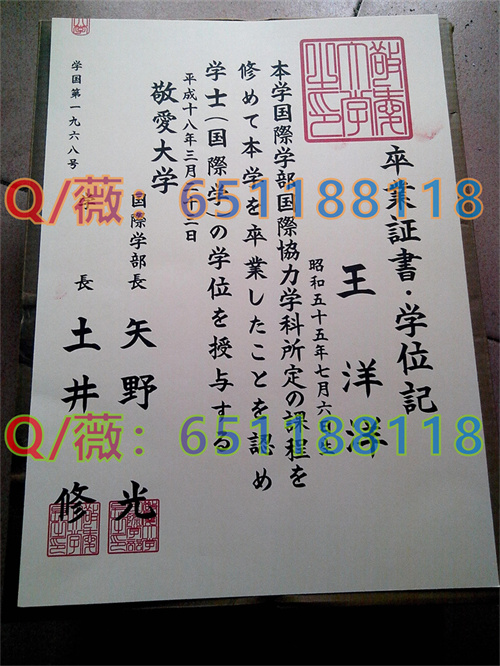 卒業証書・学位記
王洋洋
昭和五十五年七月六日生
本学国際学部国際協力学科所定の課程を
修めて本学を卒業したことを認め
学士(国際学)の学位を授与する
平成十八年三月二十三日
敬愛大学
国際学部長 矢野光
学長 土井修
学国第一九六八号
Q/薇：651188118
Q/薇：651188118